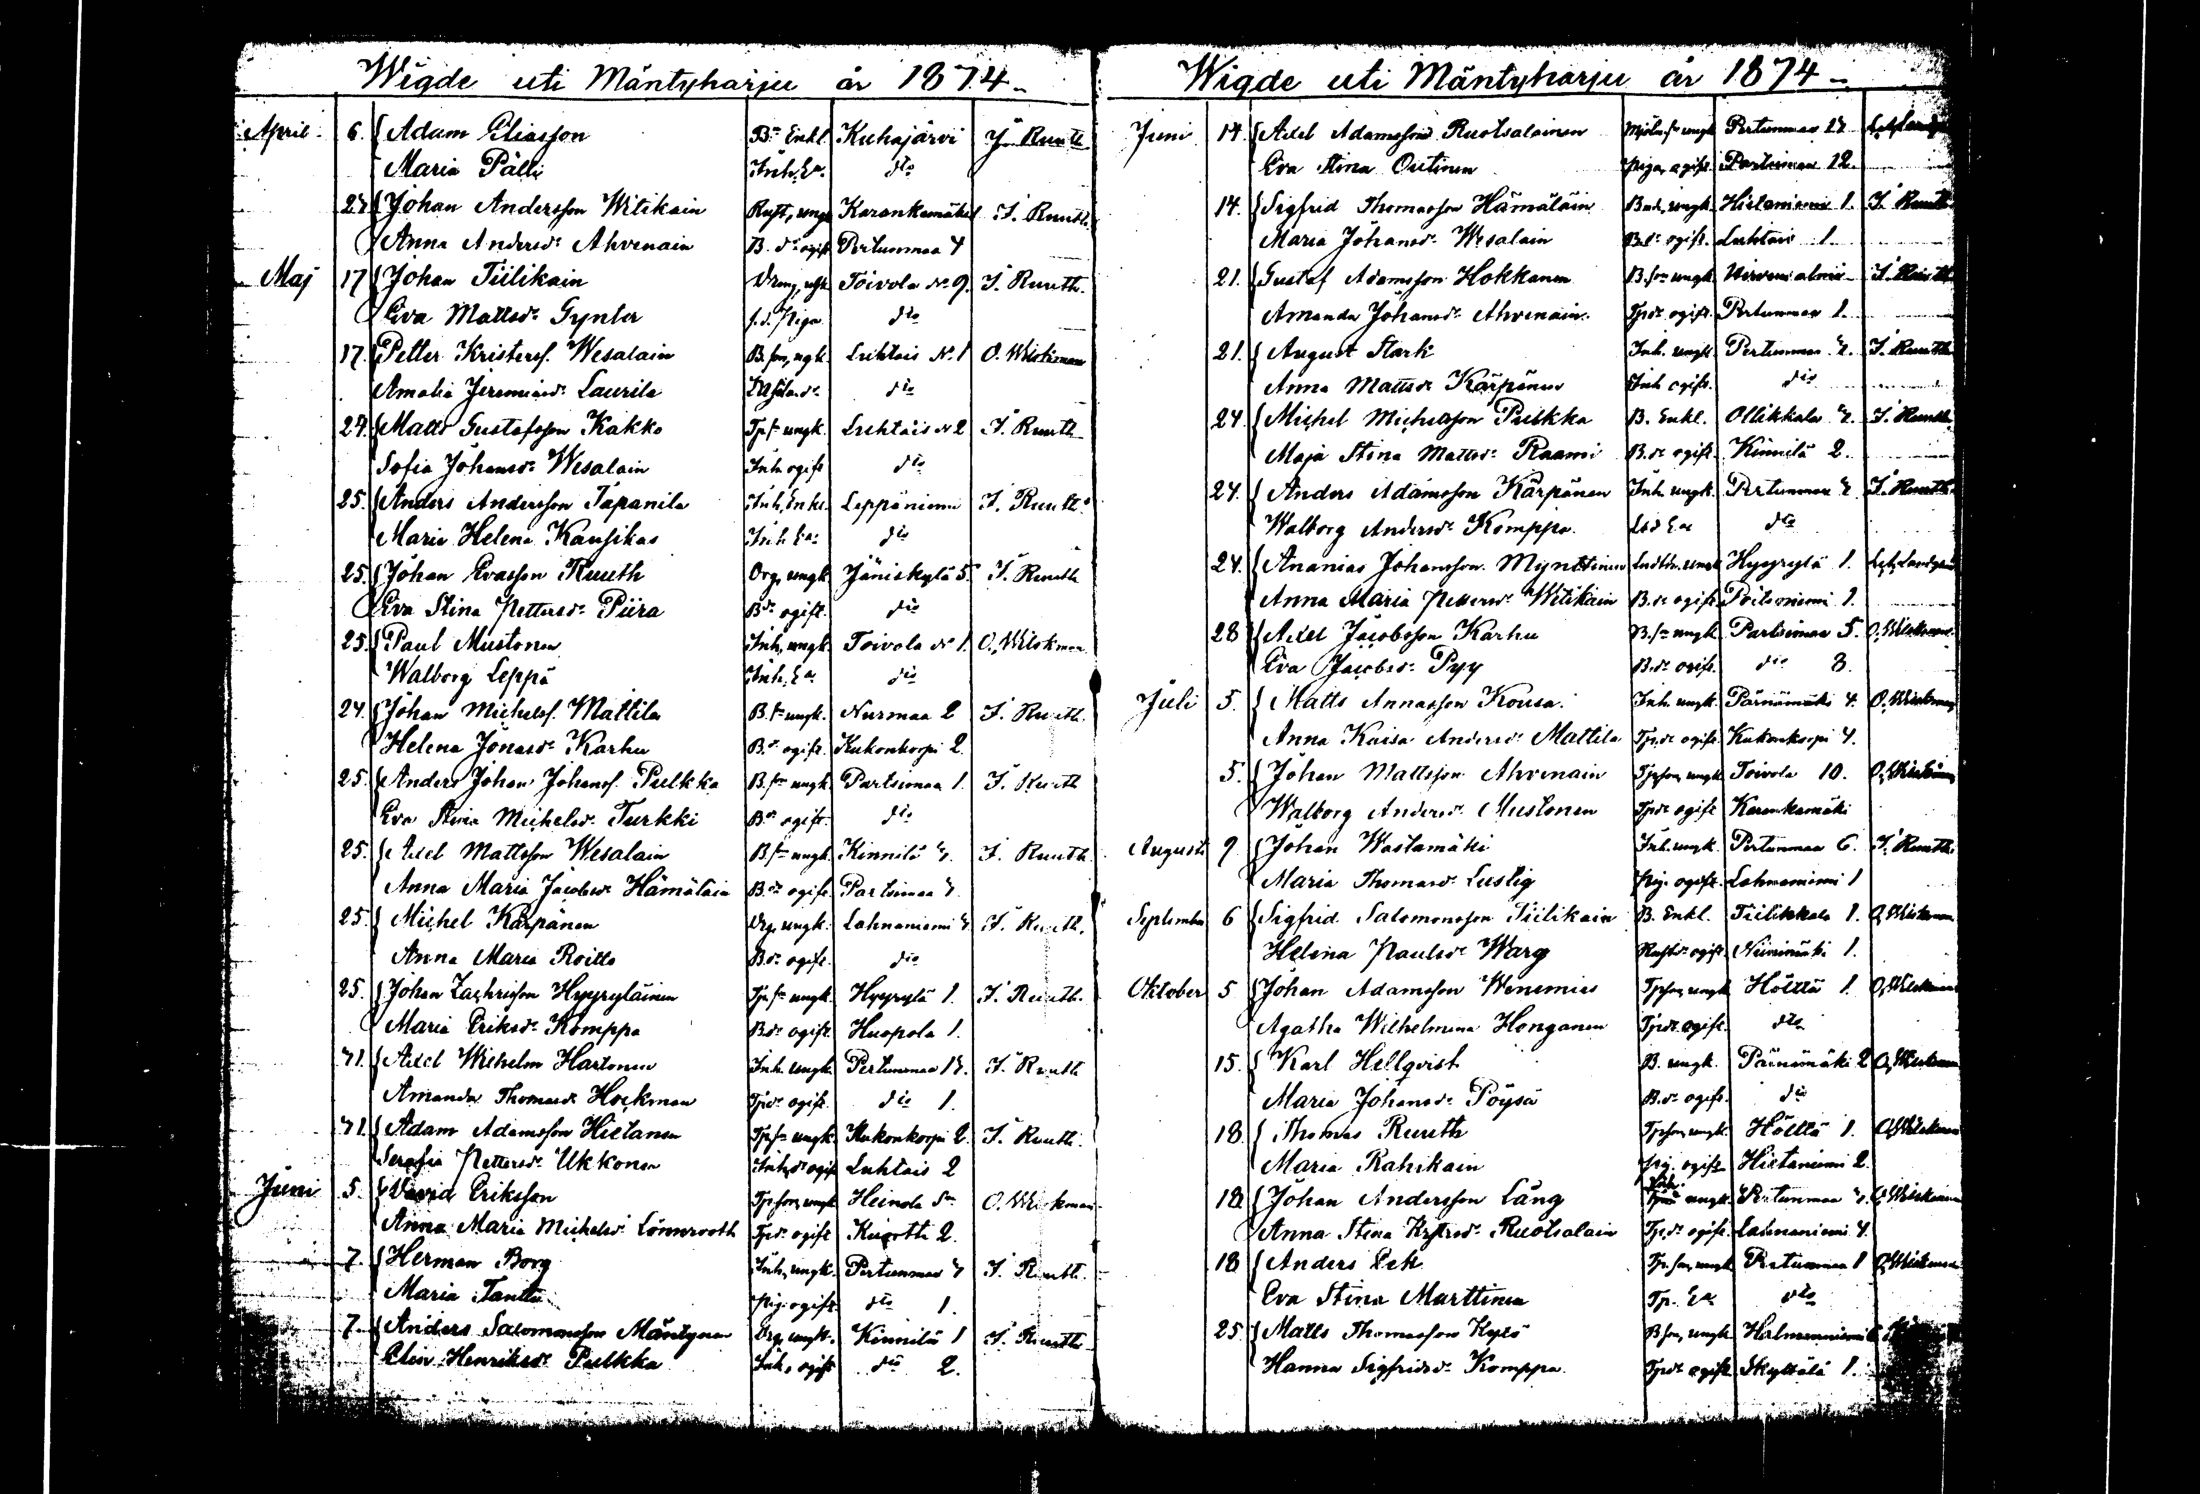 Wigde uti Mäntyharju år 1874
April 6 Adam Eliasson Bde Enkl Kuhajärvi J. Ruuth
Maria Pälli Inh. Ea. dto
27 Johan Andersson Witikain Rust, ungk Karankamäki J. Ruuth
Anna Andersdr Ahvenain B. dr ogift Pertunmaa 4
Maj 17 Johan Tiilikain Dreng, ungk Toivola No 9. J. Ruuth.
Eva Mattsdr Gynter f.d. Piga dto
17. Petter Kristersf. Wesalain B. son, ungk. Luhtais No 1 O. Wiskman
Amalia Jeremiasdr Laurila dto
24. Matts Gustafsson Kakko Tpsn ungk. Luhtais No 2 J. Ruuth
Sofia Johansdr Wesalain Inh ogift dto
25. Anders Andersson Tapanila Inh, Enkl. Leppäniemi J. Ruuth
Maria Helena Kausikas Inh Ea: dto
25. Johan Evasson Ruuth Drg, ungk. Jäniskylä 5. J. Ruuth
Eva Stina Pettersdr Piira Bdr ogift. dto
25. Paul Mustonen Inh, ungk. Toivola No 1. O. Wiskman
Walborg Leppä Inh, Ea dto
24. Johan Michelsf. Mattila B. sn ungk. Nurmaa 2 J. Ruuth.
Helena Jonasdr Karhu B.dr ogift. Kukonkorpi 2.
25. Anders Johan Johansf. Pulkka B. sn ungk. Partsimaa 1. J. Ruuth
Eva Stina Michelsdr Turkki Bdr ogift. dto
25. Axel Mattsson Wesalain B. sn ungk. Kinnilä J. Ruuth
Anna Maria Jacobsdr Hämäläin B.dr ogift. Partsimaa
25. Michel Kärpänen Drg. ungk. Lahnaniemi J. Ruuth.
Anna Maria Roitto B.dr ogift. dto
25. Johan Zachrisson Hyyryläinen Tp. sn ungk. Hyyrylä 1. J. Ruuth.
Maria Eriksdr Komppa B.dr ogift. Huopola 1.
Axel Wilhelm Hartonen Inh. ungk. Pertunmaa J. Ruuth
Amanda Thomasdr Hockman Tpdr ogift. dto 1.
Adam Adamsson Hietanen Tpsn ungk. Kukonkorpi 2. J. Ruuth.
Serafia Pettersdr Ukkonen Inh, dr ogift Luhtais 2
Juni 5. David Eriksson Tpson, ungk. Heinola O. Wiskman
Anna Maria Michelsdr Lönnrooth Tpdr ogift 2.
7. Herman Borg Inh, ungk. Pertunmaa J. Ruuth.
Maria Tanttu Pig. ogift dto 1.
7. Anders Salomonsson Mäntynen Drg. ungk. Kinnilä 1 J. Ruuth
Elin Henriksdr Pulkka Inh, ogift dto 2.
Wigde uti Mäntyharju år 1874
Juni 14. Axel Adamsson Ruotsalainen ungk Pertunmaa
Eva Stina Outinen Piga, ogift. Partsimaa 12.
14. Sigfrid Thomasson Hämäläin ungk. Hietaniemi 1. J. Ruuth
Maria Johansdr Wesalain B.dr ogift. Luhtais 1
21. Gustaf Adamsson Hokkanen B. sn ungk J. Ruuth
Amanda Johansdr Ahvenain. Tpdr ogift. Pertunmaa 1.
21. August Stark Inh. ungk Pertunmaa J. Ruuth
Anna Mattsdr Kärpänen Inh ogift. dto
24. Michel Michelsson Pulkka B. Enkl. Ollikkala J. Ruuth
Maja Stina Mattsdr Raami B.dr ogift. Kinnilä 2.
24. Anders Adamsson Kärpänen Inh. ungk. Pertunmaa J. Ruuth
Walborg Andersdr Komppa. dto
24. Ananias Johansson Mynttinen Hyyrylä 1.
Anna Maria Pettersdr Witikain B.dr ogift Poitsoniemi 1.
28 Axel Jacobsson Karhu B. sn ungk. Partsimaa 5. O. Wiskman
Eva Jacobsdr Pyy B.dr ogift. dto 3.
Juli 5. Matts Annasson Kousa. Inh. ungk. Pärnämäki 4. O. Wiskman
Anna Kaisa Andersdr Mattila Tp.dr ogift. Kukonkorpi 4.
5. Johan Mattsson Ahvenain Tpson, ungk. Toivola 10. O. Wiskman
Walborg Andersdr Mustonen Tpdr ogift Karankamäki
Augusti 9. Johan Wastamäki Inh. ungk. Pertunmaa 6. J. Ruuth
Maria Thomasdr Lustig Pig. ogift. Lahnaniemi 1
September 6 Sigfrid Salomonsson Tiilikain B. Enkl. Tiilikkala 1. O. Wiskman
Helena Paulsdr Warg Rustdr ogift. Niinimäki 1.
Oktober 5 Johan Adamsson Wenemies Tpson, ungk. Hölttä 1. O. Wiskman
Agatha Wilhelmina Honganen Tpdr ogift. dto
15. Karl Hellqvist B. ungk. Pärnämäki 2 O. Wiskman
Maria Johansdr Pöysä B.dr ogift. dto
18. Thomas Ruuth Tpson, ungk. Hölttä 1. O. Wiskman
Maria Rahikain Pig. ogift Hietaniemi 2.
18. Johan Andersson Lång Inh. ungk. Pertunmaa O. Wiskman
Anna Stina Ruotsalain Tp.dr ogift. Lahnaniemi 4.
18 Anders Eek Tp. son, ungk Pertunmaa 1 O. Wiskman
Eva Stina Marttinen Tp. Ea dto
25. Matts Thomasson B son, ungk.
Hanna Sigfridsdr Komppa. Tpdr ogift. Skyttälä 1.